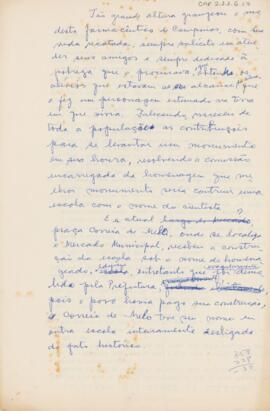 CAP 2.1.1.6.17
Tão grande altura granjeou o mo
desto farmacêutico de Campinas, com sua
vida recatada, sempre solícito em aten
der seus amigos e sempre dedicado à
pobreza que o procurava.
que estavam ao seu alcance, que
o fez um personagem estimado na terra
em que vivia. Falecendo, receberam de
toda a população as contribuições
para se levantar um monumento
em sua honra, resolvendo a comissão
encarregada da homenagem que me
lhor monumento seria construir uma
escola com o nome do cientista
E a atual largo do Mercado,
praça Correia de Melo, onde se localiza
o Mercado Municipal, recebeu a constru
ção da escola sob o nome do homena
geado, entretanto que foi demo
lido pela Prefeitura,
pois o povo havia pago sua construção,
e Correia de Melo tem seu nome em
outra escola inteiramente desligada
do fato histórico.